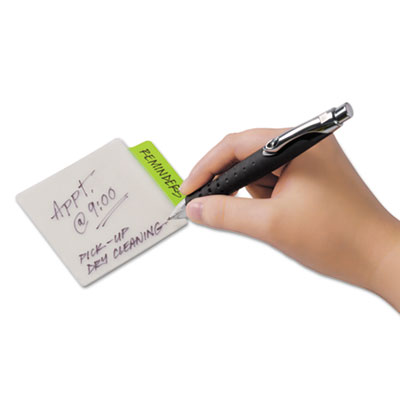 REMINDERS
APPT.
@ 9:00
PICK-UP
DRY CLEANING